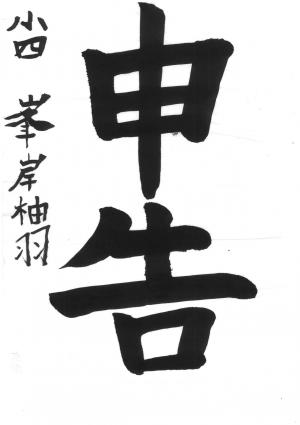 申告
小四 峯岸柚羽